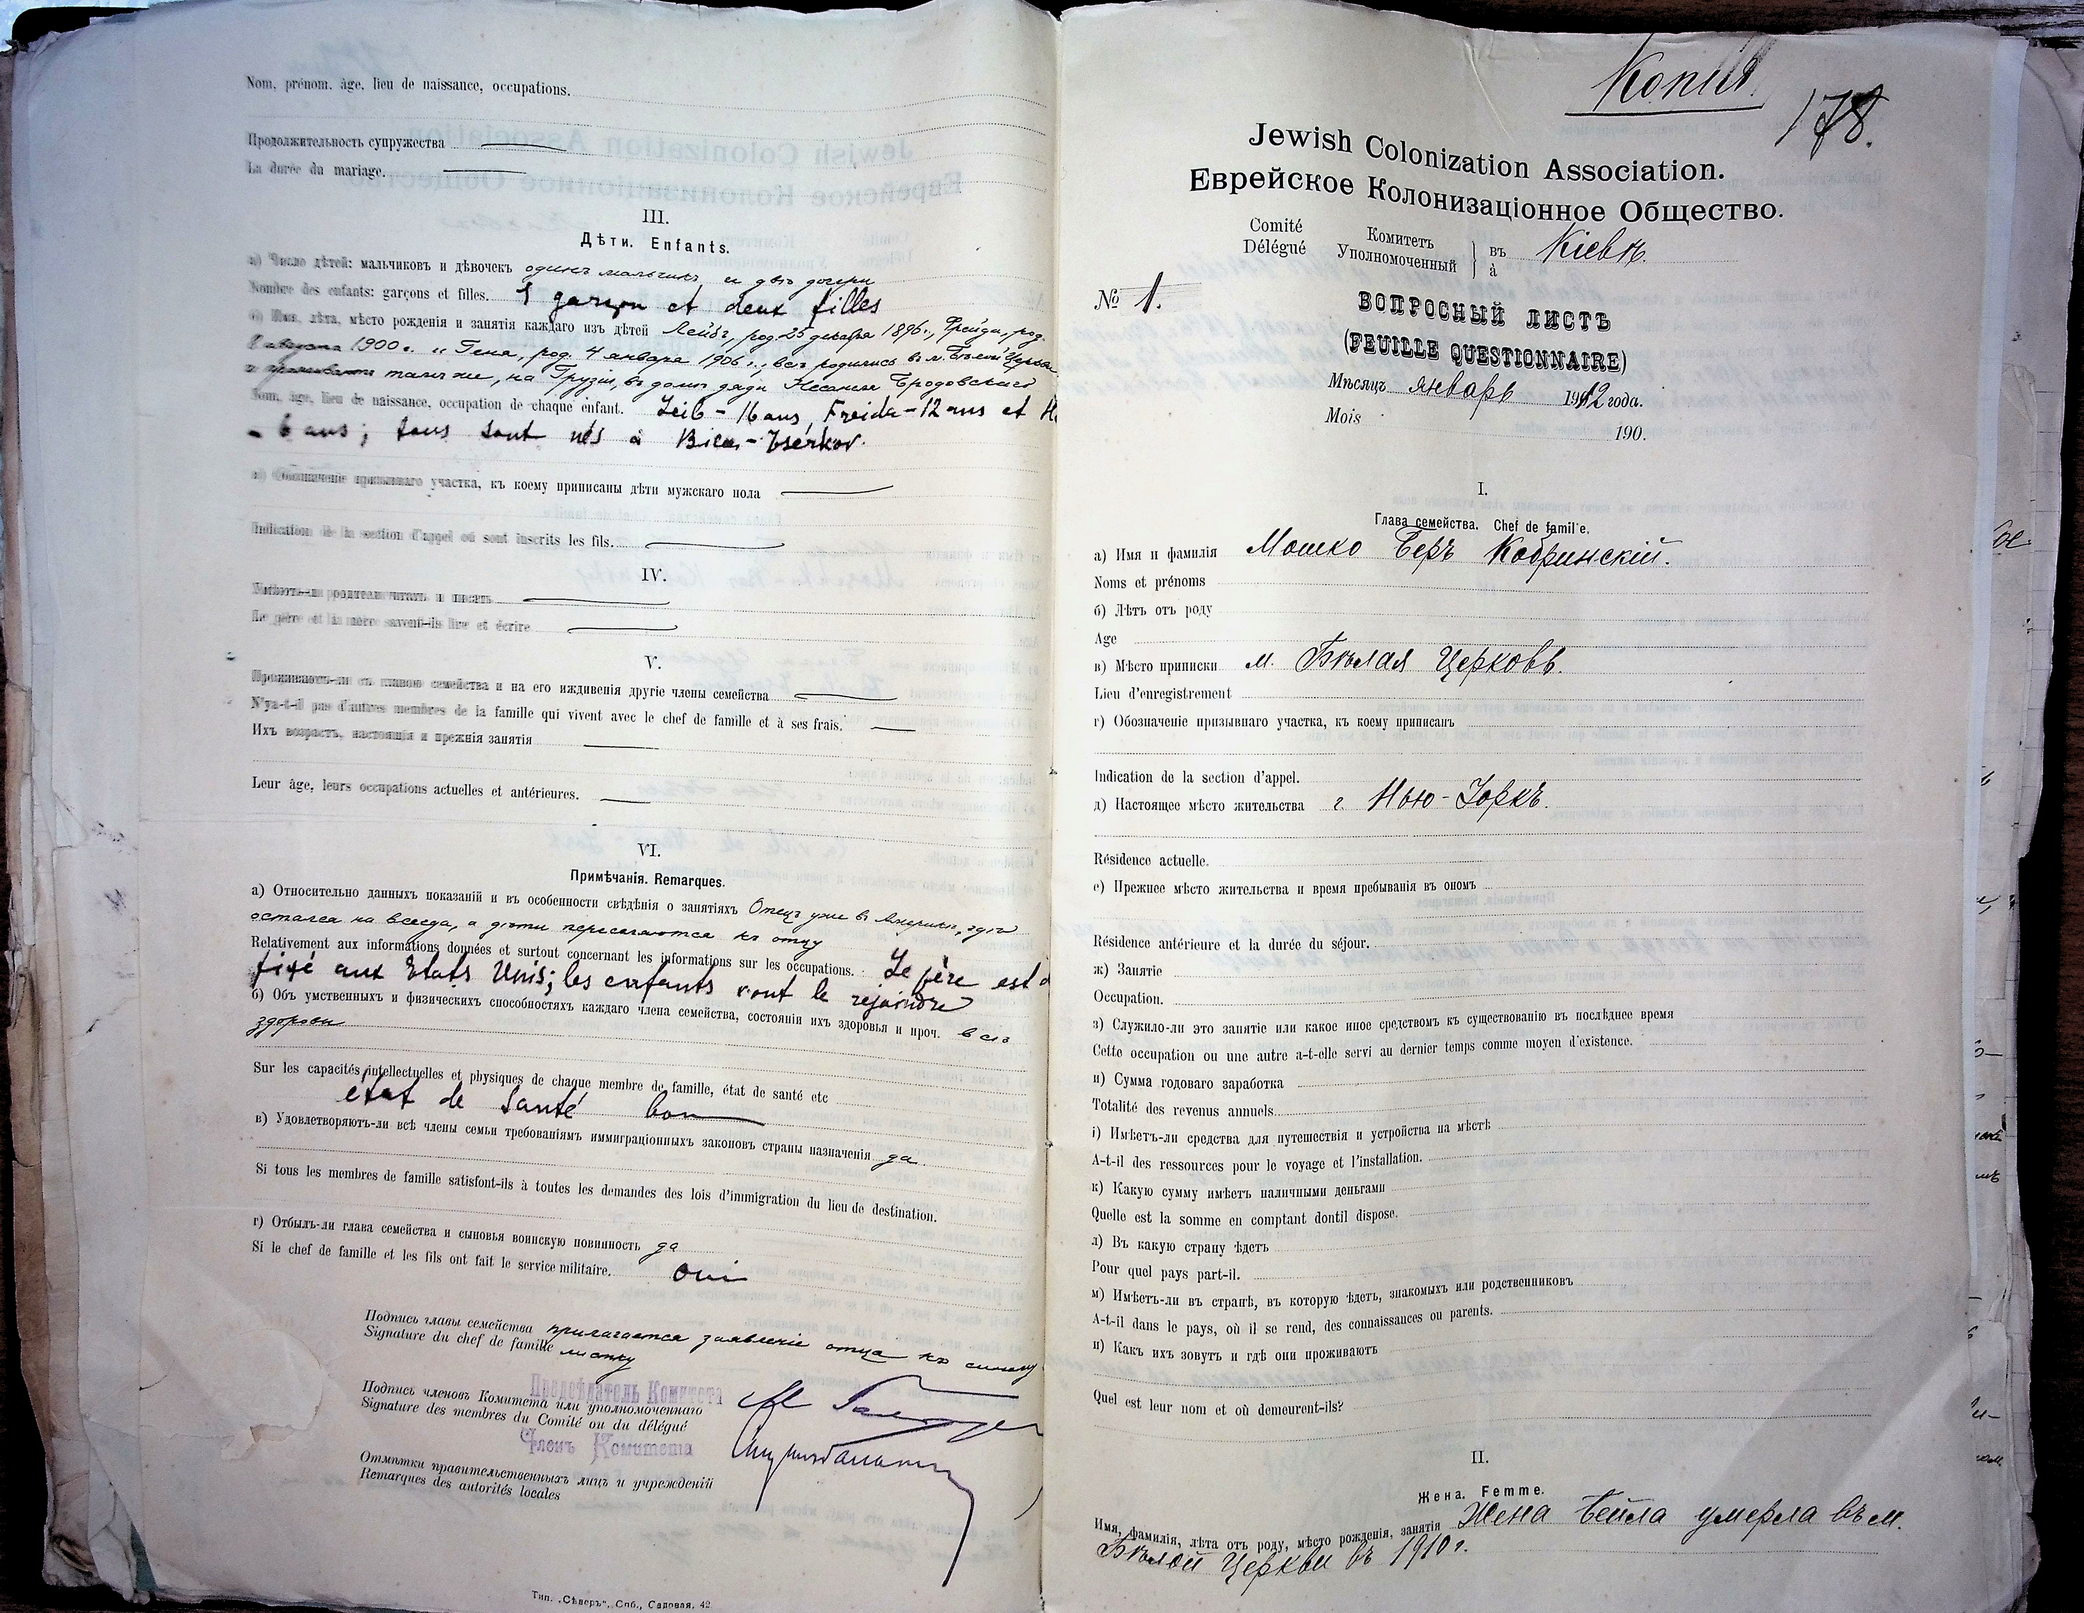 Nom, prénom, âge, lieu de naissance, occupations.
Продолжительность супружества
La durée du mariage.
III.
Дѣти. Enfants.
а) Число дѣтей: мальчиковъ и дѣвочекъ одинъ мальчикъ и двѣ дочери
Nombre des enfants: garçons et filles. 1 garçon et deux filles
б) Имя, лѣта, мѣсто рожденія и занятія каждаго изъ дѣтей Лейбъ, род. 25 декабря 1896 г., Фрейда, род.
августа 1900 г. и Геня, род. 4 января 1906 г., всѣ родились въ м. Бѣлой Церкви
и проживаютъ тамъ же, на Грузіи, въ домѣ дяди Бродовскаго
Nom, âge, lieu de naissance, occupation de chaque enfant. Leib - 16 ans, Freida - 12 ans et
- 6 ans; tous sont nés à Biela-Tsérkov.
в) Обозначеніе призывнаго участка, къ коему приписаны дѣти мужскаго пола
Indication de la section d'appel où sont inscrits les fils.
IV.
Умѣютъ-ли родители читать и писать
Le père et la mère savent-ils lire et écrire
V.
Проживаютъ-ли съ главою семейства и на его иждивенія другіе члены семейства
N'ya-t-il pas d'autres membres de la famille qui vivent avec le chef de famille et à ses frais.
Ихъ возрастъ, настоящія и прежнія занятія
Leur âge, leurs occupations actuelles et antérieures.
VI.
Примѣчанія. Remarques.
а) Относительно данныхъ показаній и въ особенности свѣдѣнія о занятіяхъ Отецъ уже въ Америкѣ, гдѣ
остался на всегда, а дѣти переселяются къ отцу
Relativement aux informations données et surtout concernant les informations sur les occupations. Le père est
fixé aux Etats Unis; les enfants vont le rejoindre
б) Объ умственныхъ и физическихъ способностяхъ каждаго члена семейства, состояніи ихъ здоровья и проч. всѣ
здоровы
Sur les capacités intellectuelles et physiques de chaque membre de famille, état de santé etc
état de santé bon
в) Удовлетворяютъ-ли всѣ члены семьи требованіямъ иммиграціонныхъ законовъ страны назначенія да.
Si tous les membres de famille satisfont-ils à toutes les demandes des lois d'immigration du lieu de destination.
г) Отбылъ-ли глава семейства и сыновья воинскую повинность да
Si le chef de famille et les fils ont fait le service militaire. oui
Подпись главы семейства прилагается заявленіе отца къ сему
Signature du chef de famille листку
Предсѣдатель Комитета
Подпись членовъ Комитета или уполномоченнаго
Signature des membres du Comité ou du délégué
Членъ Комитета
Отмѣтки правительственныхъ лицъ и учрежденій
Remarques des autorités locales
Тип. „Сѣверъ“, Спб., Садовая, 42
Копія.
178.
Jewish Colonization Association.
Еврейское Колонизаціонное Общество.
Comité Комитетъ въ Кіевѣ.
Délégué Уполномоченный à
№ 1.
ВОПРОСНЫЙ ЛИСТЪ
(FEUILLE QUESTIONNAIRE)
Мѣсяцъ январь 1912 года.
Mois 190.
I.
Глава семейства. Chef de famille.
а) Имя и фамилія Мошко Беръ Кобринскій.
Noms et prénoms
б) Лѣтъ отъ роду
Age
в) Мѣсто приписки м. Бѣлая Церковь.
Lieu d'enregistrement
г) Обозначеніе призывнаго участка, къ коему приписанъ
Indication de la section d'appel.
д) Настоящее мѣсто жительства г. Нью-Іоркъ.
Résidence actuelle.
е) Прежнее мѣсто жительства и время пребыванія въ ономъ
Résidence antérieure et la durée du séjour.
ж) Занятіе
Occupation.
з) Служило-ли это занятіе или какое иное средствомъ къ существованію въ послѣднее время
Cette occupation ou une autre a-t-elle servi au dernier temps comme moyen d'existence.
и) Сумма годоваго заработка
Totalité des revenus annuels.
і) Имѣетъ-ли средства для путешествія и устройства на мѣстѣ
A-t-il des ressources pour le voyage et l'installation.
к) Какую сумму имѣетъ наличными деньгами
Quelle est la somme en comptant dontil dispose.
л) Въ какую страну ѣдетъ
Pour quel pays part-il.
м) Имѣетъ-ли въ странѣ, въ которую ѣдетъ, знакомыхъ или родственниковъ
A-t-il dans le pays, où il se rend, des connaissances ou parents.
н) Какъ ихъ зовутъ и гдѣ они проживаютъ
Quel est leur nom et où demeurent-ils?
II.
Жена. Femme.
Имя, фамилія, лѣта отъ роду, мѣсто рожденія, занятія Жена Бейла умерла въ м.
Бѣлой Церкви въ 1910 г.